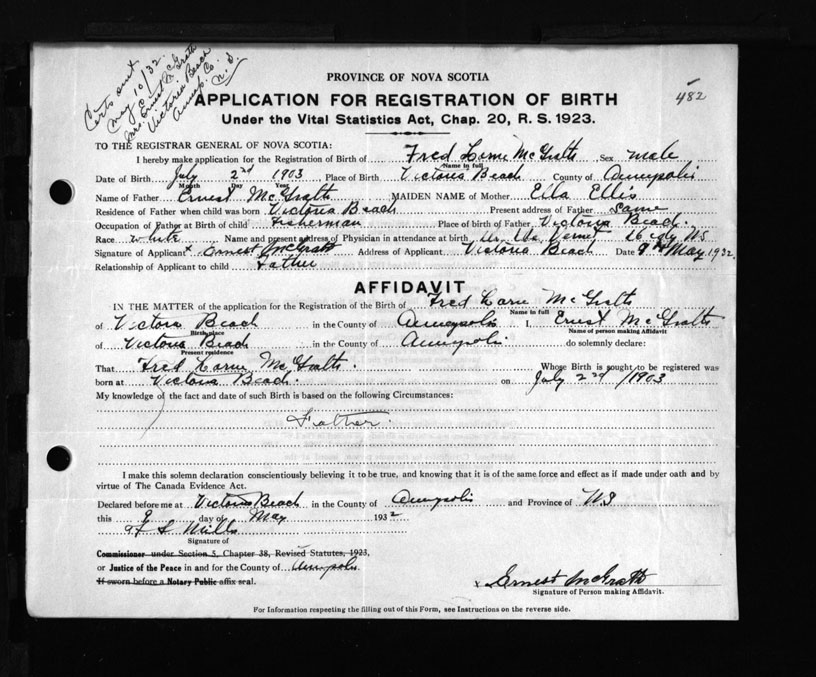 Certs sent
May 10/32.
to
Mrs. Ernest McGrath
Victoria Beach
Annap. Co.
N. S.
482
PROVINCE OF NOVA SCOTIA
APPLICATION FOR REGISTRATION OF BIRTH
Under the Vital Statistics Act, Chap. 20, R. S. 1923.
TO THE REGISTRAR GENERAL OF NOVA SCOTIA:
I hereby make application for the Registration of Birth of Fred Lorne McGrath Sex male
Name in full
Date of Birth July 2nd 1903 Place of Birth Victoria Beach County of Annapolis
Month Day Year
Name of Father Ernest McGrath MAIDEN NAME of Mother Ella Ellis
Residence of Father when child was born Victoria Beach Present address of Father Same
Occupation of Father at Birth of child Fisherman Place of birth of Father Victoria Beach.
Race white Name and present address of Physician in attendance at birth Dr. NS
Signature of Applicant x Ernest McGrath Address of Applicant Victoria Beach Date 9th May 1932.
Relationship of Applicant to child Father
AFFIDAVIT
IN THE MATTER of the application for the Registration of the Birth of Fred Lorne McGrath
Name in full
of Victoria Beach in the County of Annapolis I, Ernest McGrath
Birthplace Name of person making Affidavit
of Victoria Beach in the County of Annapolis do solemnly declare:
Present residence
That Fred Lorne McGrath. Whose Birth is sought to be registered was
born at Victoria Beach. on July 2nd /1903
My knowledge of the fact and date of such Birth is based on the following Circumstances:
Father.
I make this solemn declaration conscientiously believing it to be true, and knowing that it is of the same force and effect as if made under oath and by
virtue of The Canada Evidence Act.
Declared before me at Victoria Beach in the County of Annapolis and Province of NS
this 9 day of May 1932
Mills
Signature of
Commissioner under Section 5, Chapter 38, Revised Statutes, 1923,
or Justice of the Peace in and for the County of Annapolis
If sworn before a Notary Public affix seal.
x Ernest McGrath
Signature of Person making Affidavit.
For Information respecting the filling out of this Form, see Instructions on the reverse side.